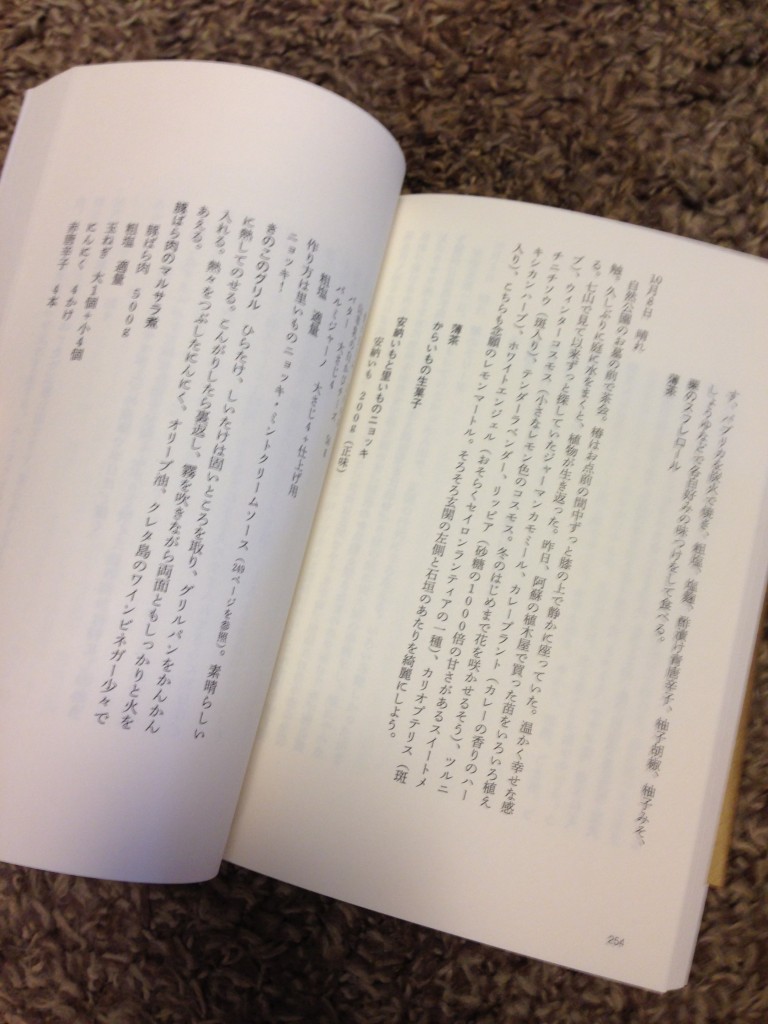 す。パプリカを炭火で焼き、粗塩、塩麹、酢漬け青唐辛子、柚子胡椒、柚子みそ、
しょうゆなどで各自好みの味つけをして食べる。
栗のスフレロール
薄茶
10月6日 晴れ
自然公園のお墓の前で茶会。椿はお点前の間中ずっと膝の上で静かに座っていた。温かく幸せな感
触。久しぶりに庭に水をまくと、植物が生き返った。昨日、阿蘇の植木屋で買った苗をいろいろ植え
る。七山で見て以来ずっと探していたジャーマンカモミール、カレープラント（カレーの香りのハー
ブ）、ウィンターコスモス（小さなレモン色のコスモス。冬のはじめまで花を咲かせるそう）、ツルニ
チニチソウ（斑入り）、テンダーラベンダー、リッピア（砂糖の1000倍の甘さがあるスイートメ
キシカンハーブ）、ホワイトエンジェル（おそらくセイロンランティアの一種）、カリオプテリス（斑
入り）、こちらも念願のレモンマートル。そろそろ玄関の左側と石垣のあたりを綺麗にしよう。
薄茶
からいもの生菓子
安納いもと里いものニョッキ
安納いも 200g（正味）
バター 大さじ4
パルミジャーノ 大さじ4+仕上げ用
粗塩 適量
作り方は里いものニョッキ・ミントクリームソース（249ページを参照）。素晴らしい
ニョッキ！
きのこのグリル ひらたけ、しいたけは固いところを取り、グリルパンをかんかん
に熱してのせる。こんがりしたら裏返し、霧を吹きながら両面ともしっかりと火を
入れる。熱々をつぶしたにんにく、オリーブ油、クレタ島のワインビネガー少々で
あえる。
豚ばら肉のマルサラ煮
豚ばら肉 500g
粗塩 適量
玉ねぎ 大1個+小4個
にんにく 4かけ
赤唐辛子 4本